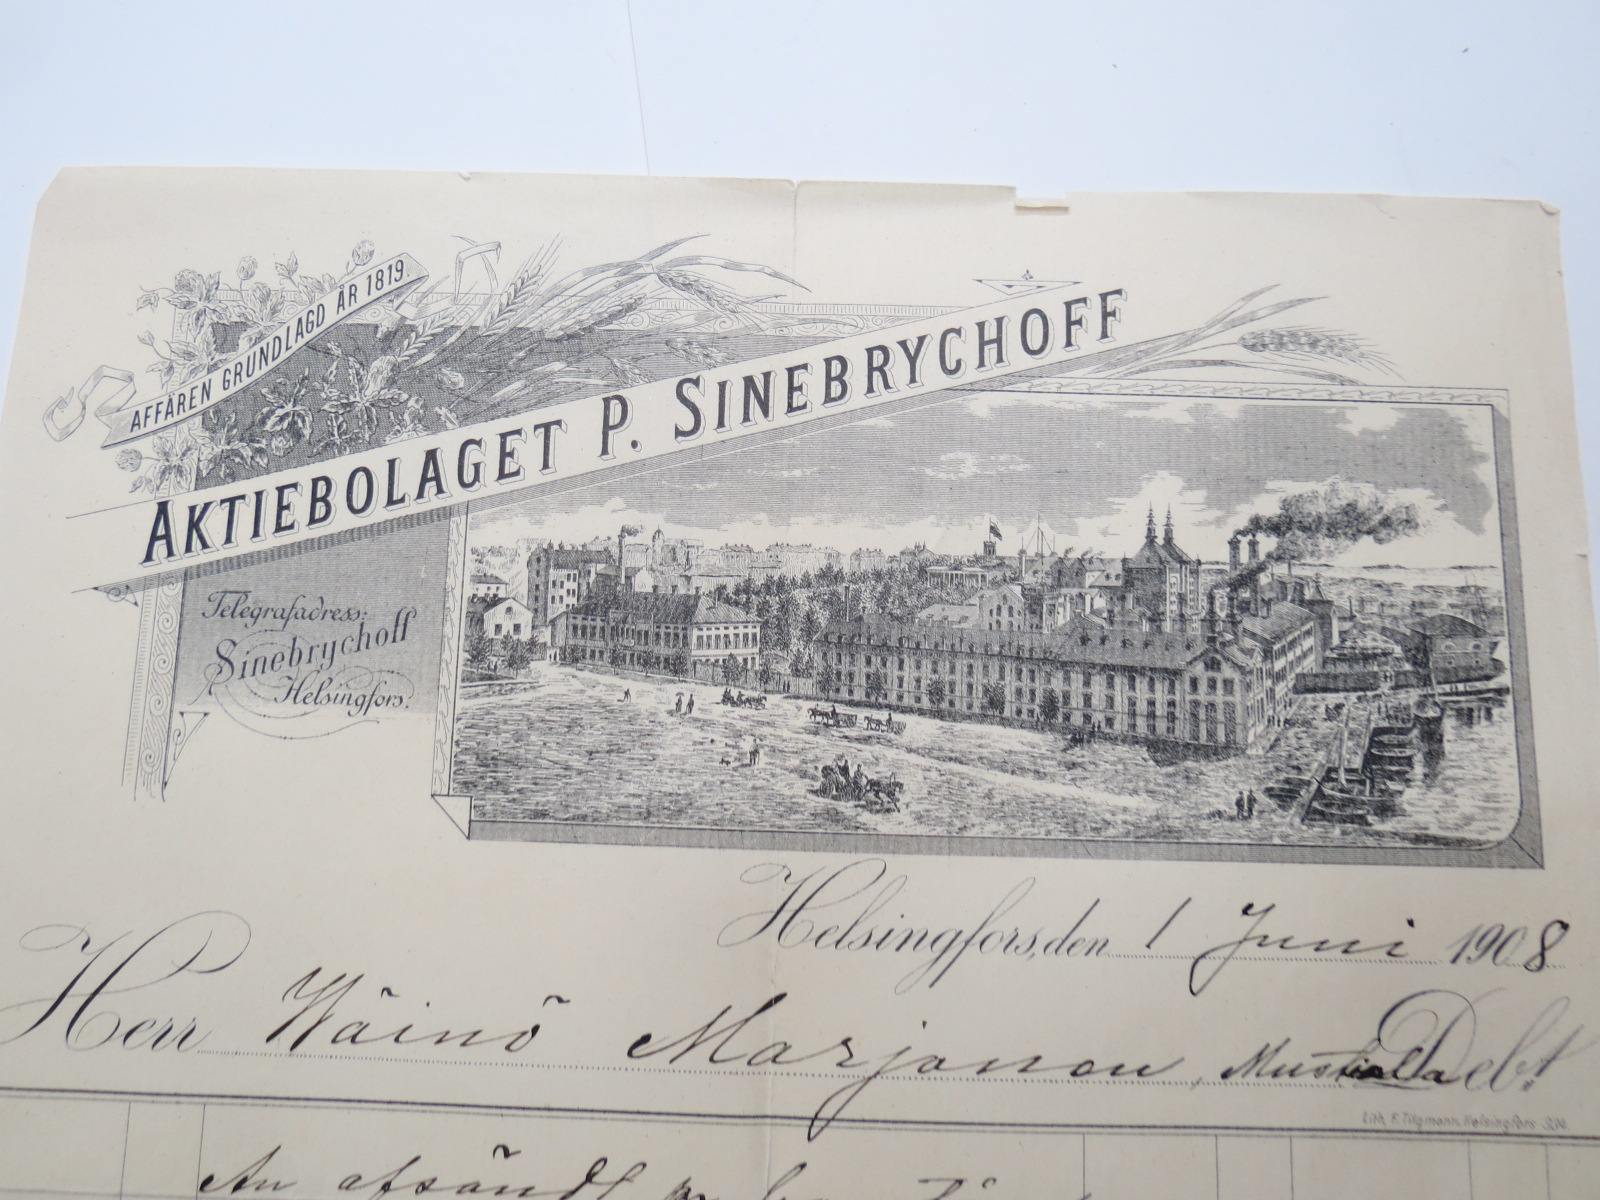 AFFÄREN GRUNDLAGD ÅR 1819.
AKTIEBOLAGET P. SINEBRYCHOFF
Telegrafadress:
Sinebrychoff
Helsingfors.
Helsingfors, den 1 Juni 1908
Herr Wäinö Marjanen, Mustiala Debt
Lith. F. Tilgmann, Helsingfors
An afsändt